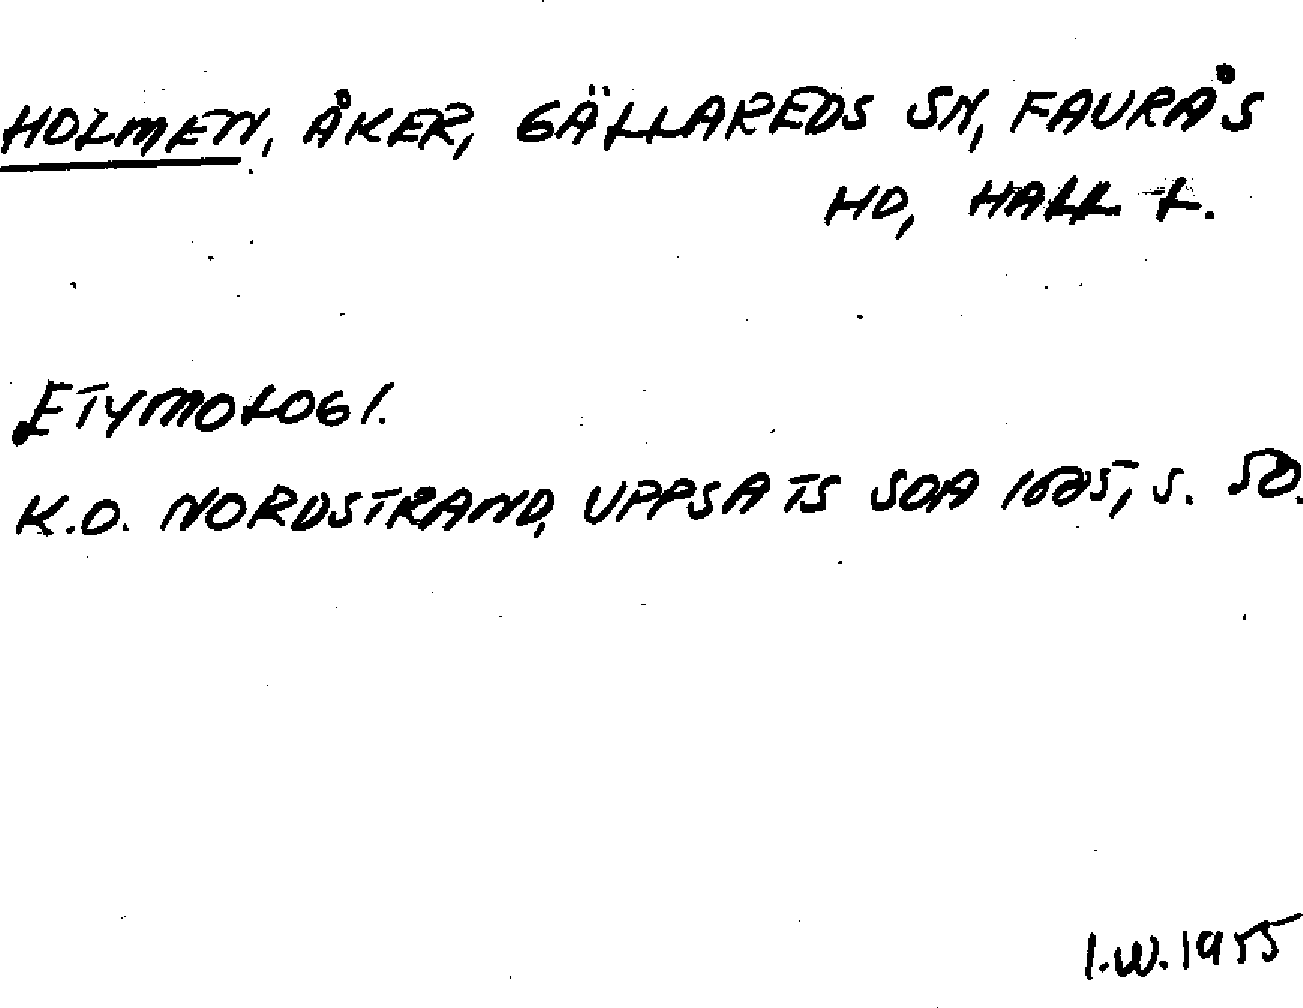 HOLMEN, ÅKER, GÄLLAREDS SN, FAURÅS
HD, HALL. L.
ETYMOLOGI.
K.O. NORDSTRAND, UPPSATS SOA s. 50.
I.W. 1955